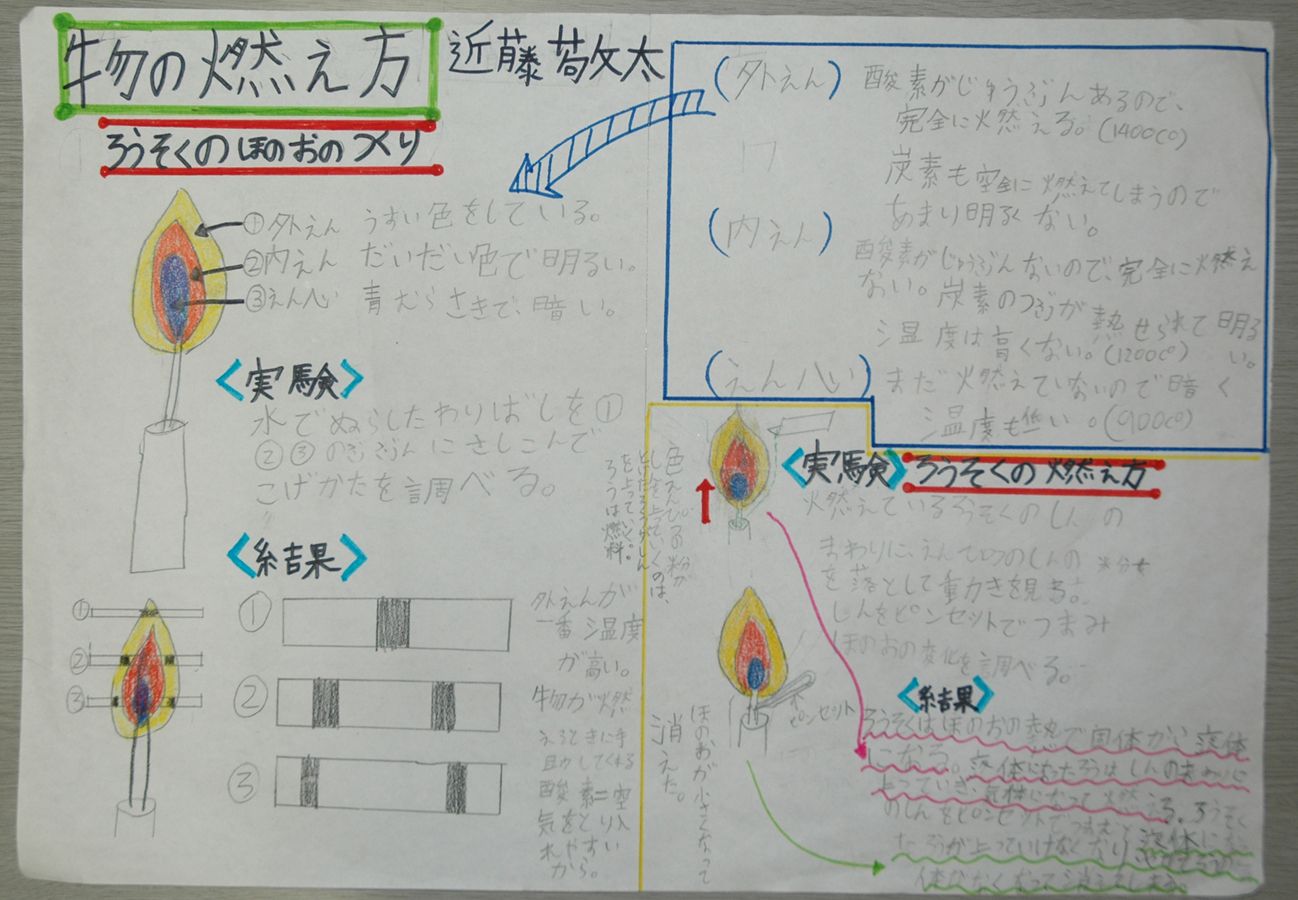 物の燃え方
近藤敬太
ろうそくのほのおのつくり
①外えん うすい色をしている。
②内えん だいだい色で明るい。
③えん心 青むらさきで、暗い。
〈実験〉
水でぬらしたわりばしを①
②③のぶぶんにさしこんで
こげかたを調べる。
〈結果〉
①
②
③
①
②
③
外えんが
一番温度
が高い。
物が燃
えるときに手
助けしてくれる
酸素=空
気をとり入
れやすい
から。
(外えん) 酸素がじゅうぶんあるので、
完全に燃える。(1400c°)
炭素も完全に燃えてしまうので
あまり明るくない。
(内えん)
酸素がじゅうぶんないので、完全に燃え
ない。炭素のつぶが熱せられて明るい。
温度は高くない。(1200c°)
(えん心) まだ燃えていないので暗く
温度も低い。(900c°)
〈実験〉ろうそくの燃え方
燃えているろうそくのしんの
まわりに、えんぴつのしんの粉
を落として動きを見る。
しんをピンセットでつまみ
ほのおの変化を調べる。
色えんぴつの粉が
しんを上っていくのは、
とけたろうがしん
を上っていく。
ろうは燃料。
ピンセット
ほのおが小さくなって
消えた。
〈結果〉
ろうそくはほのおの熱で固体から液体
になる。液体になったろうはしんのまわりに
上っていき、気体になって燃える。ろうそく
のしんをピンセットでつまむと液体になっ
たろうが上っていけなくなり
体がなくなって消えてしまう。